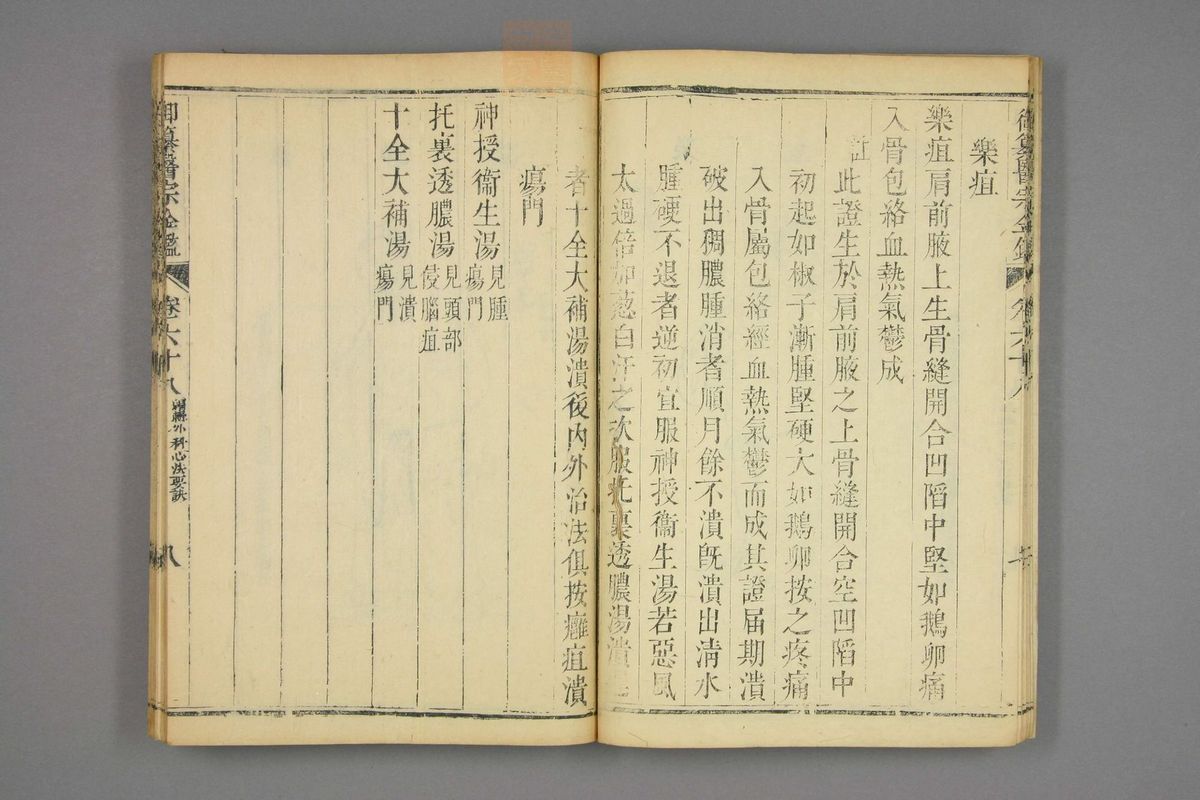 御纂醫宗金鑑 卷六十八
樂疽
樂疽肩前腋上生骨縫開合凹陷中堅如鵝卵痛
入骨包絡血熱氣鬱成
註
此證生於肩前腋之上骨縫開合空凹陷中
初起如椒子漸腫堅硬大如鵝卵按之疼痛
入骨屬包絡經血熱氣鬱而成其證屆期潰
破出稠膿腫消者順月餘不潰旣潰出淸水
腫硬不退者逆初宜服神授衞生湯若惡風
太過倍加葱白汗之次服托裏透膿湯潰
者十全大補湯潰後內外治法俱按癰疽潰
瘍門
神授衞生湯 見腫
瘍門
托裏透膿湯 見頭部
侵腦疽
十全大補湯 見潰
瘍門
御纂醫宗金鑑 卷六十八 編輯外科心法要訣 八